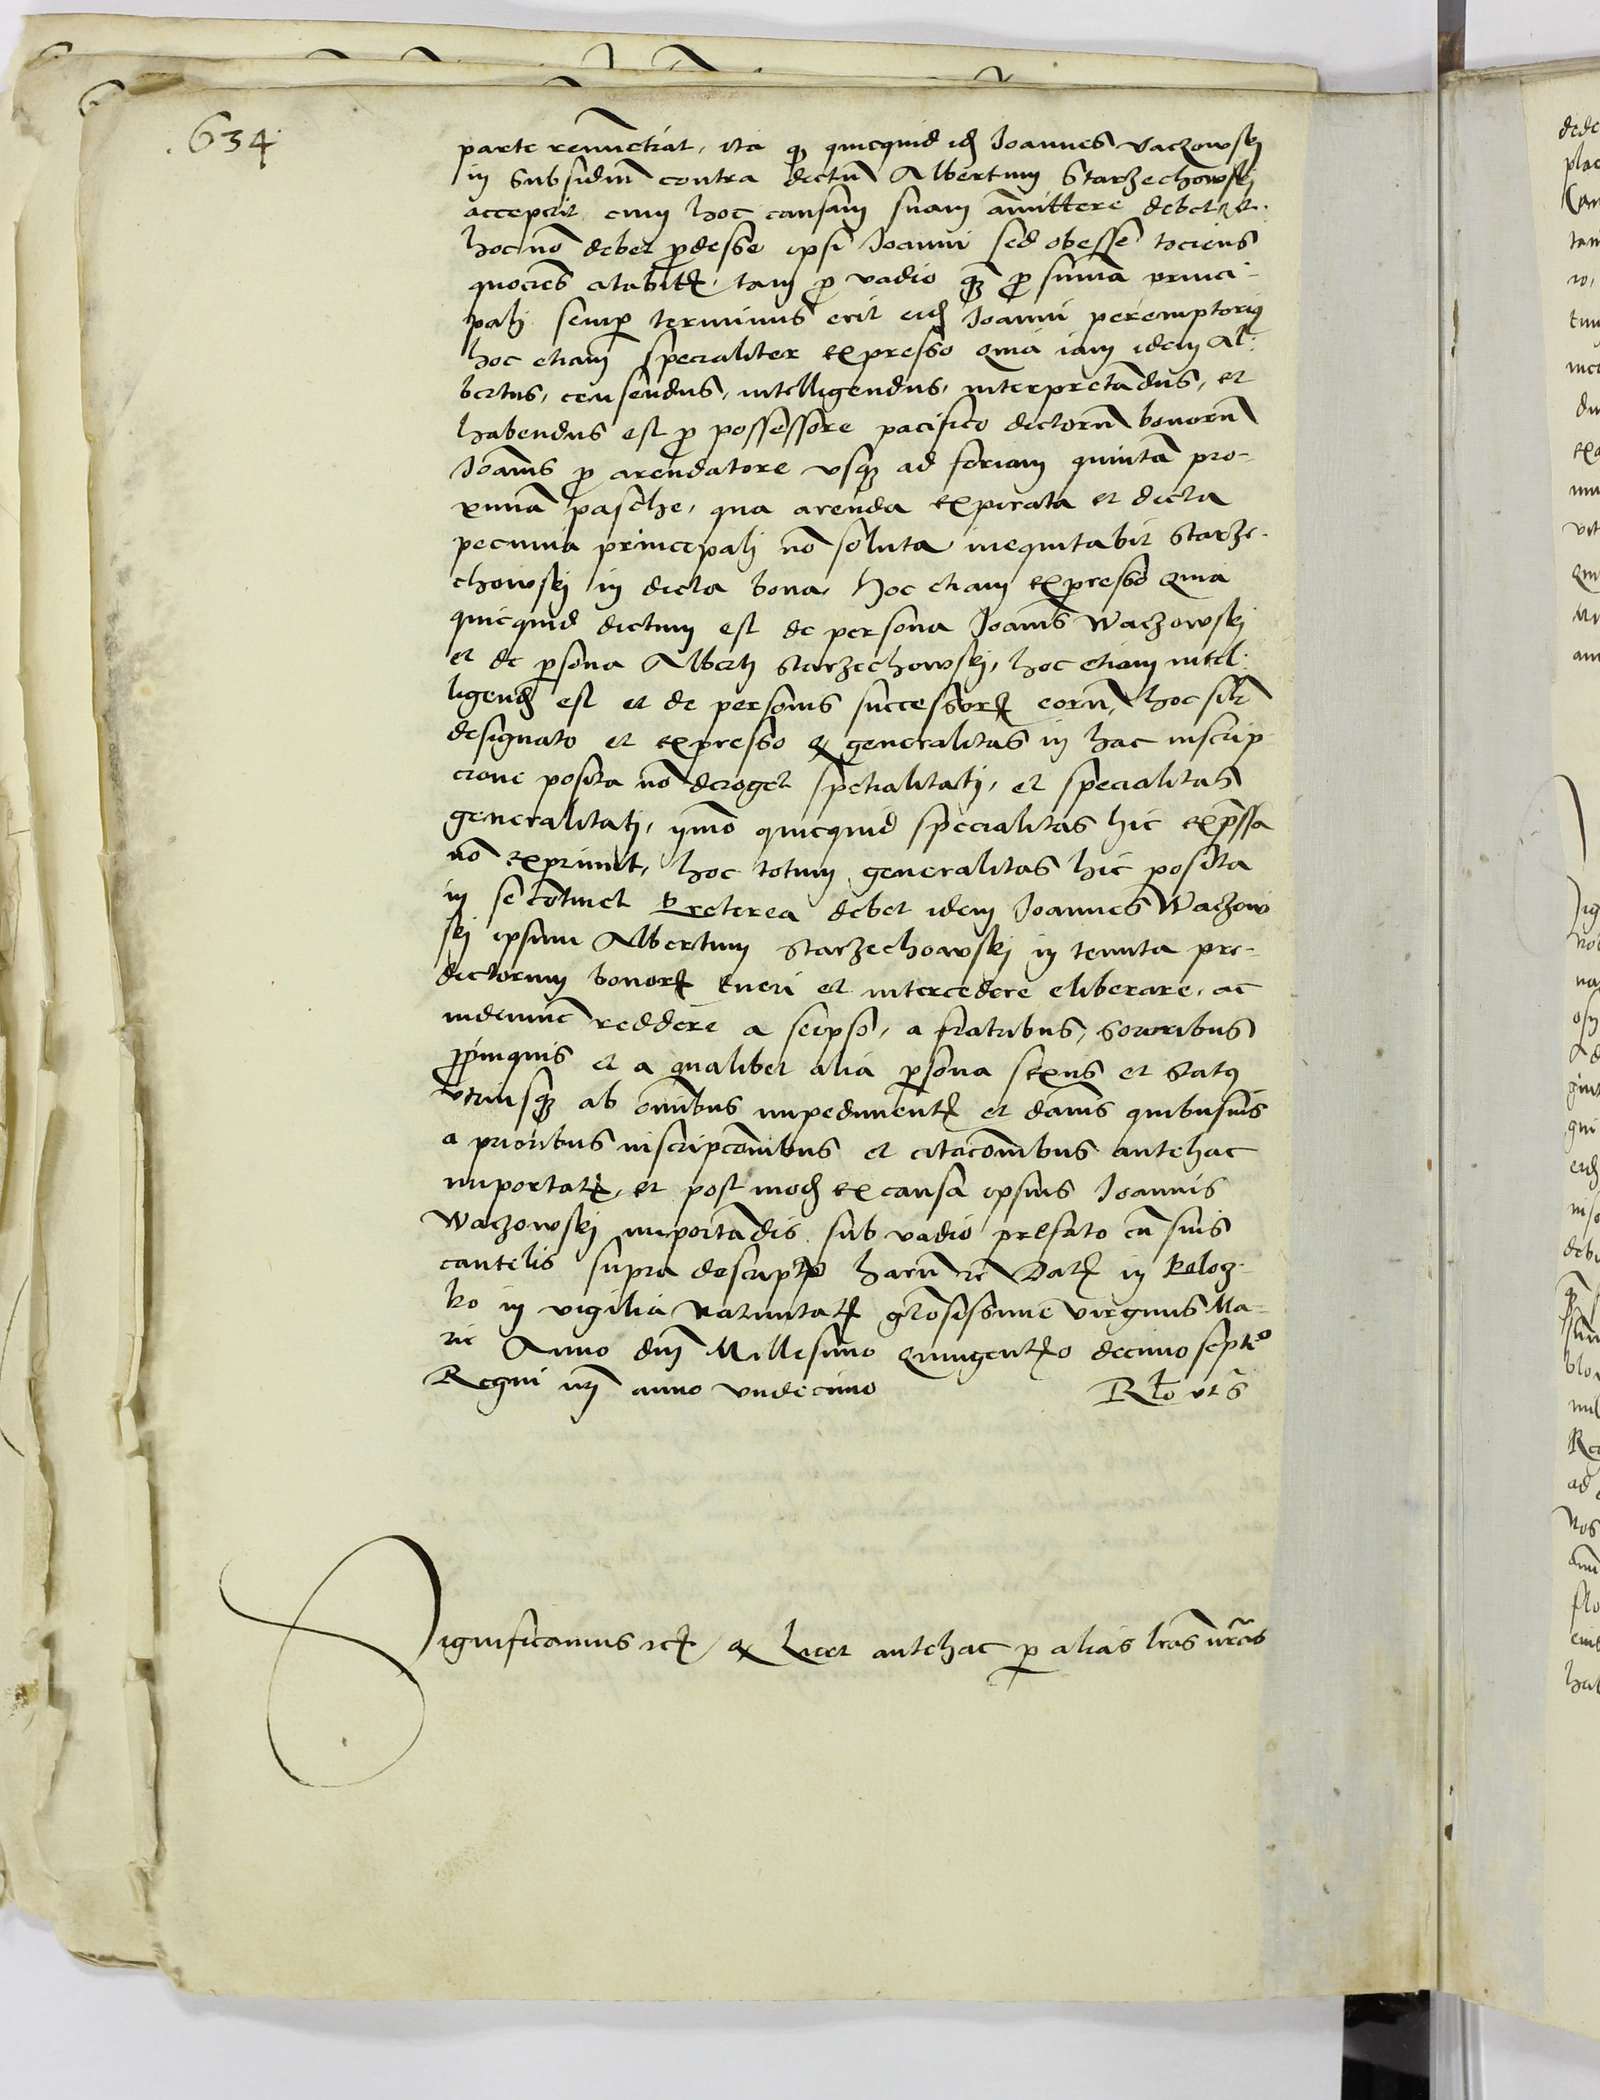 634
parte renunctiat, ita qꝫ quicquid idꝫ Joannes Vaczowskj
in subsidiũ contra dictũ Albertum Starzechowskj
acceperit, cum hoc causam suam amittere debet, et
hoc nõ debet ꝓdesse ipsi Joanni sed obesse tociens
quociẽs citabitꝛ, tam ꝓ vadio qꝫ ꝓ suma princi-
palj semꝑ terminus erit eidꝫ Joanni peremptoriꝰ
hoc etiam specialiter expresso quia iam idem Al-
bertus, censendus, intelligendus, interpretãdus, et
habendus est ꝓ possessore pacifico dictorũ bonorũ
Joãnis ꝓ arendatore vsqꝫ ad feriam quintã pro-
ximã pasche, qua arenda expirata et dicta
pecunia principalj nõ soluta inequitabit Starze-
chowskj in dicta bona, Hoc etiam expresso quia
quicquid dictum est de persona Joãnis Waczowskj
et de ꝑsona Albertj Starzechowskj, hoc etiam intel-
ligendꝫ est et de personis successorꝝ eorũ, hoc sil̃r
designato et expresso qꝫ generalitas in hac inscrip
cione posita nõ deroget spetialitatj, et specialitas
generalitatj, ymo quicquid specialitas hic exp̃ssa
nõ exprimit, hoc totum generalitas hic posita
in se cõtinet Preterea debet idem Joannes Waczow
skj ipsum Albertum Starzechowskj in tenuta pre-
dictorum bonorꝝ tueri et intercedere eliberare, ac
indemnẽ reddere a seipso, a fratribus, sororibus
ꝓpinquis et a qualibet alia ꝑsona sexus et statꝰ
vtriusqꝫ ab õnibus impedimentꝭ et dãnis quibusuis
a prioribus inscripcõnibus et citacõnibus antehac
importatꝭ, et post modꝫ ex causa ipsius Joannis
Waczowskj importãdis sub vadio prefato cũ suis
cautelis supra descriptꝭ harũ zc̃ Datꝭ in Kelog-
ko in vigilia natiuitatꝭ gl̃osissime virginis Ma-
rie Anno dnĩ Millesimo quingentꝭo decimo septiº
Regni nr̃j anno vndecimo Rl̃o vt s̃
Significamus zcꝭ qꝫ Licet antehac ꝑ alias lr̃as nr̃as